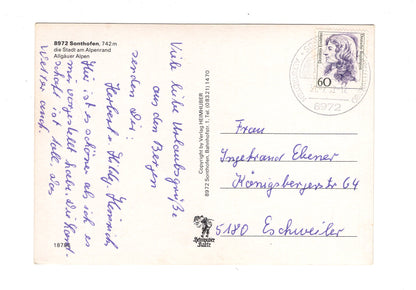 8972 Sonthofen, 742 m
die Stadt am Alpenrand
Allgäuer Alpen
Viele liebe Urlaubsgrüße
aus den Bergen
senden Dir
Herbert u. Hildg. Heinrich
Hier ist es schöner als ich es
mir vorgestellt habe. Die Land-
schaft ist toll. Das
Wetter auch.
1878
Copyright by Verlag HEIMHUBER
8972 Sonthofen, Bahnhofstr. 1, Tel. (08321) 1470
Heimhuber
Karte
60
8972
Frau
Ingetraud Ebener
Königsbergerstr 64
5180 Eschweiler